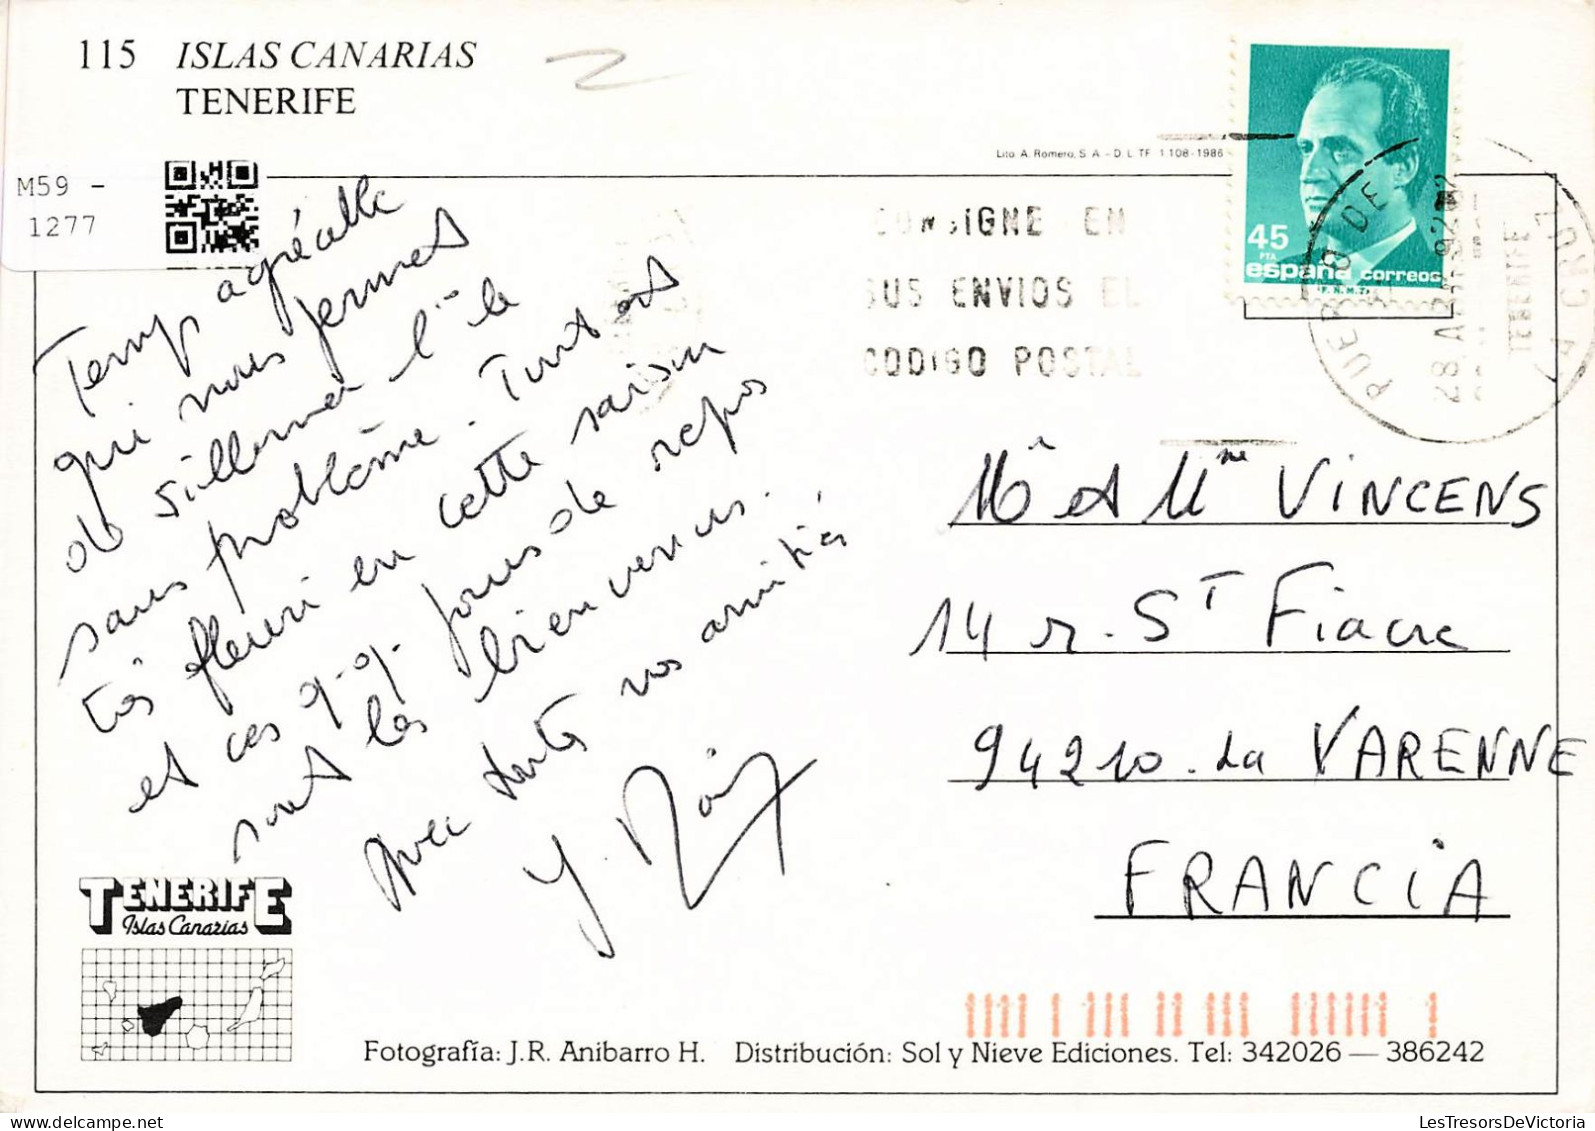 115 ISLAS CANARIAS
TENERIFE
M59 -
1277
Lito. A. Romero, S. A. - D. L. TF. 1.108-1986
45
PTA
españa correos
F.N.M.T.
CONSIGNE EN
SUS ENVIOS EL
CODIGO POSTAL
PUERTO DE LA CRUZ
TENERIFE
28 ABR 92
Temps agréable
qui nous permet
de sillonner l'île
sans problème. Tout est
très fleuri en cette saison
et ces q.q. jours de repos
sont les bienvenus.
Avec toutes nos amitiés
Mr et Mme VINCENS
14 r. ST Fiacre
94210. La VARENNE
FRANCIA
TENERIFE
Islas Canarias
Fotografía: J.R. Anibarro H. Distribución: Sol y Nieve Ediciones. Tel: 342026 — 386242
LesTresorsDeVictoria